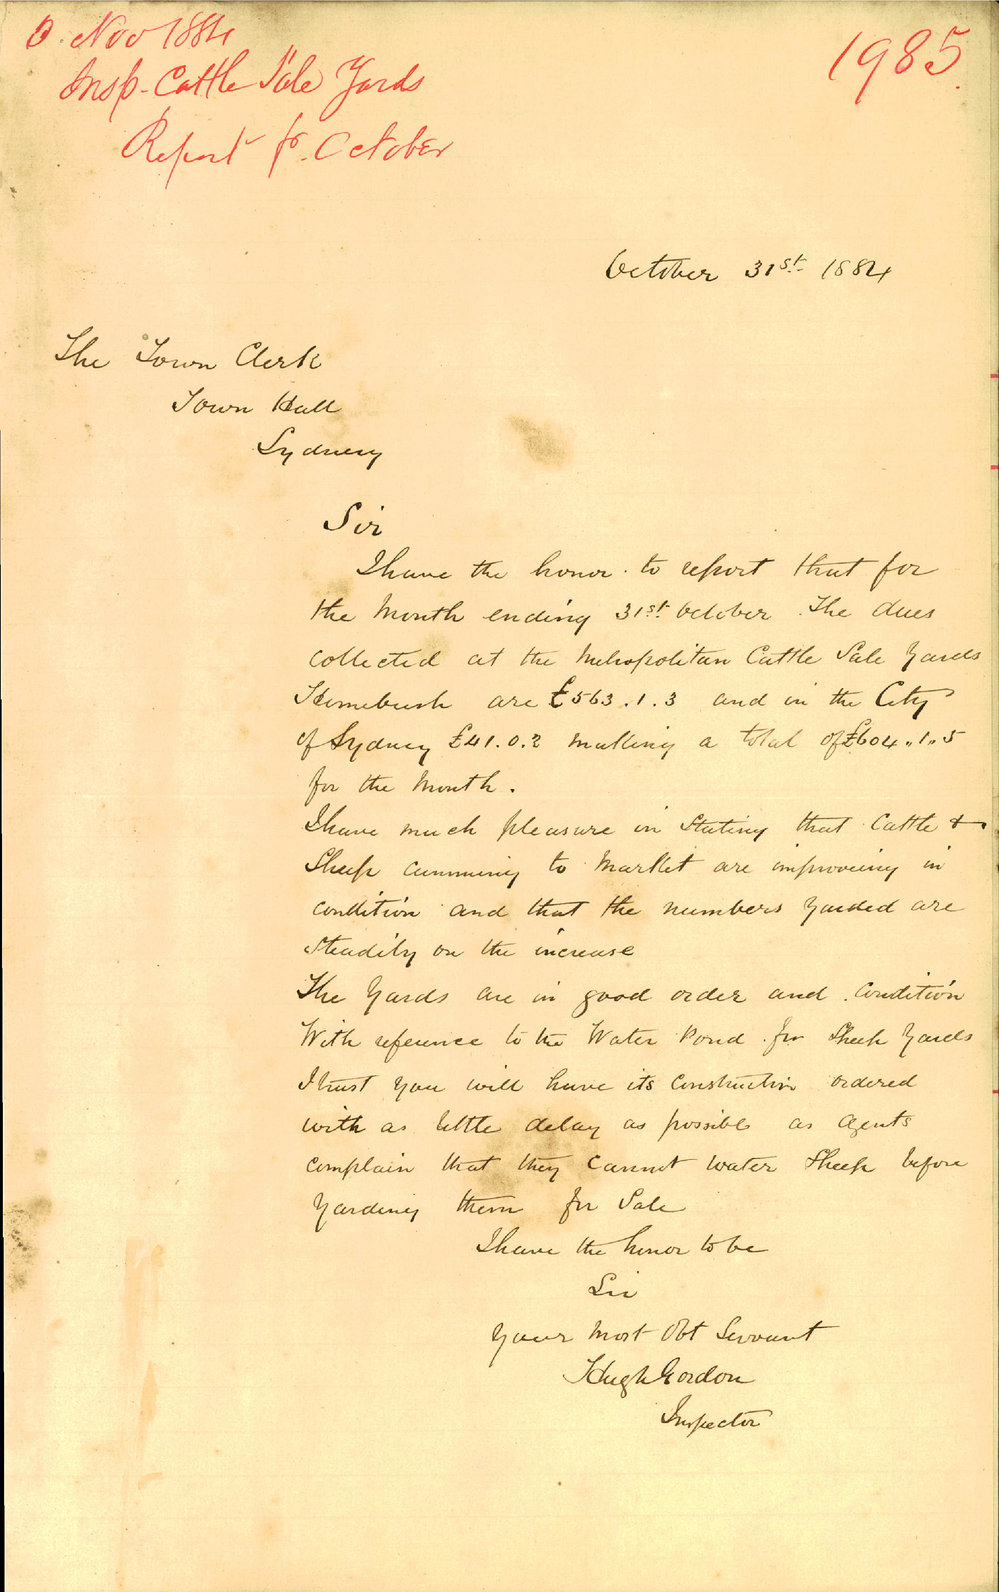 Nov 1884
Insp. Cattle Sale Yards
Report fr. October
1985.
October 31st. 1884
The Town Clerk
Town Hall
Sydney
Sir
I have the honor to report that for
the Month ending 31st. October The dues
collected at the Metropolitan Cattle Sale Yards
Homebush are £563.1.3 and in the City
of Sydney £41.0.2 making a total of £604.,1.,5
for the Month.
I have much pleasure in Stating that Cattle &
Sheep cumming to Market are improveing in
condition and that the numbers Yarded are
steadily on the increase
The Yards are in good order and condition
With reference to the Water Pond for Sheep Yards
I trust you will have its construction ordered
with as little delay as possible as agents
complain that they cannot water Sheep before
Yarding them for Sale
I have the honor to be
Sir
Your Most Obt Servant
Hugh Gordon
Inspector